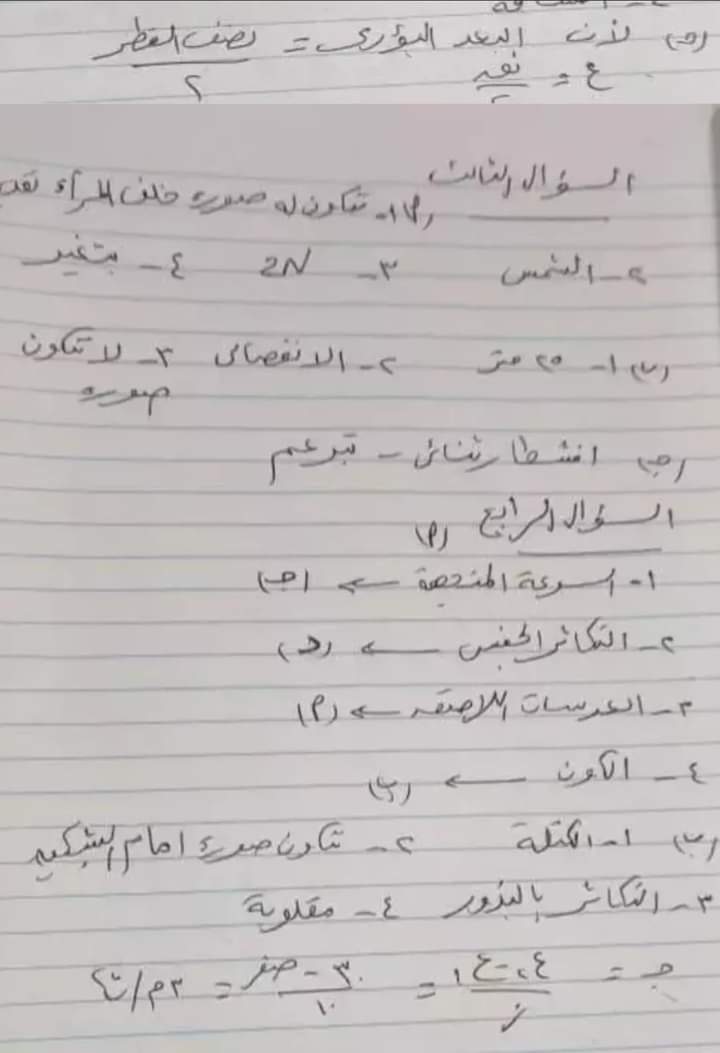 (جـ) لأن البعد البؤرى = نصف القطر / ٢
ع = نقـ / ٢
السؤال الثالث
(٩) ١- تتكون له صورة خلف المرآة
٢- الشمس ٣- 2N ٤- بتغير
(ب) ١- ٢٥ متر ٢- الانفصالى ٣- لا تتكون
صورة
(جـ) انشطار ثنائى - تبرعم
السؤال الرابع (٩)
١- السرعة المتجهة ← (جـ)
٢- التكاثر الجنسى ← (د)
٣- العدسات اللاصقة ← (٩)
٤- الكون ← (ب)
(ب) ١- الكتلة ٢- تتكون صورة امام الشبكية
٣- التكاثر بالبذور ٤- مقلوبة
جـ = ع٢ - ع١ / ز = ٣٠ - صفر / ١٠ = ٣م/ث٢